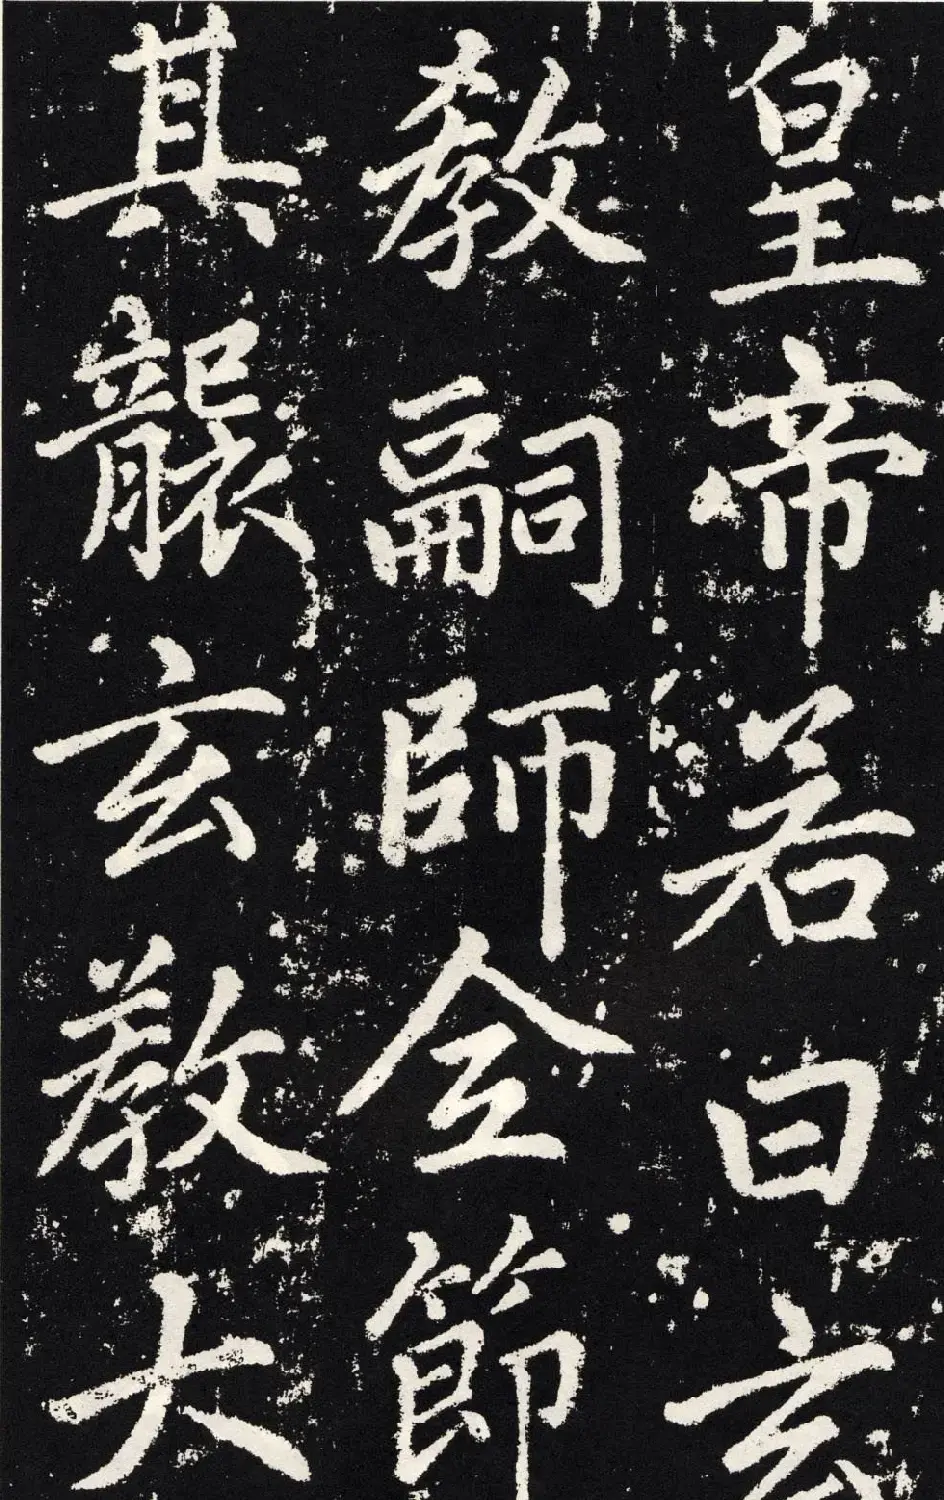 皇帝若曰玄
教嗣師全節
其襲玄教大